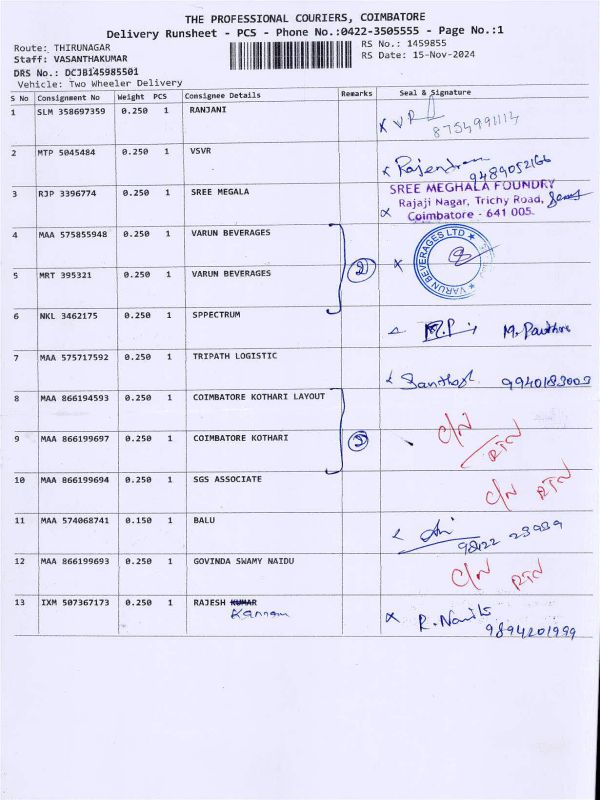 THE PROFESSIONAL COURIERS, COIMBATORE
Delivery Runsheet - PCS - Phone No.:0422-3505555 - Page No.:1
Route: THIRUNAGAR RS No.: 1459855
Staff: VASANTHAKUMAR RS Date: 15-Nov-2024
DRS No.: DCJB145985501
Vehicle: Two Wheeler Delivery
S No Consignment No Weight PCS Consignee Details Remarks Seal & Signature
1 SLM 358697359 0.250 1 RANJANI
x VR
8754991114
2 MTP 5045484 0.250 1 VSVR
x Rajendran
9489052166
3 RJP 3396774 0.250 1 SREE MEGALA
SREE MEGHALA FOUNDRY
Rajaji Nagar, Trichy Road,
x Coimbatore - 641 005.
4 MAA 575855948 0.250 1 VARUN BEVERAGES
2 x VARUN BEVERAGES LTD
5 MRT 395321 0.250 1 VARUN BEVERAGES
6 NKL 3462175 0.250 1 SPPECTRUM
7 MAA 575717592 0.250 1 TRIPATH LOGISTIC
Santhosh 9940183003
8 MAA 866194593 0.250 1 COIMBATORE KOTHARI LAYOUT
C/N
RTN
9 MAA 866199697 0.250 1 COIMBATORE KOTHARI
10 MAA 866199694 0.250 1 SGS ASSOCIATE
C/N RTN
11 MAA 574068741 0.150 1 BALU
98422 23939
12 MAA 866199693 0.250 1 GOVINDA SWAMY NAIDU
C/N RTN
13 IXM 507367173 0.250 1 RAJESH KUMAR
Kannan
x R. 9894201999